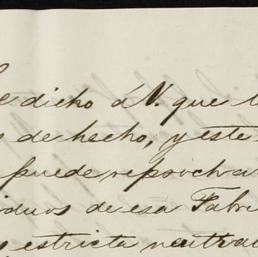 dicho á V. que
de hecho, y este
puede reprocha
iduos de esa Fabri
estricta neutral